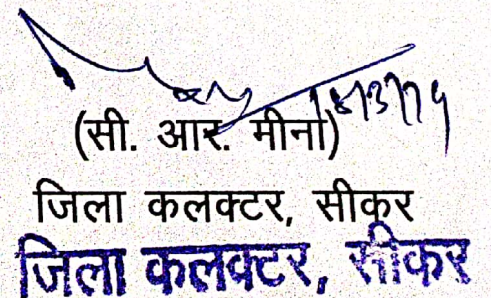 (सी. आर. मीना)
जिला कलक्टर, सीकर
जिला कलक्टर, सीकर